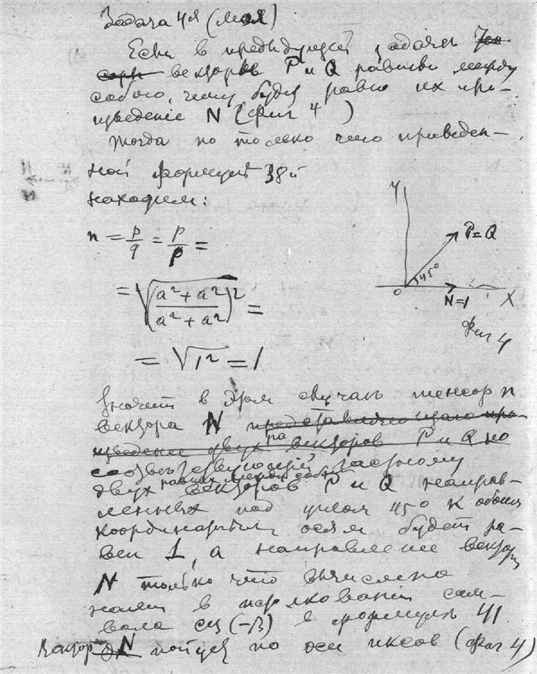 Задача 4я (моя)
Если в предидущей задаче
вектора P и Q равны между
собою, чему будет равно их про-
изведенiе N (фиг 4)
Тогда по только что приведен-
ной формуле 38й
находим:
n = p/q = p/p =
= √((a²+a²)/(a²+a²))² =
= √1² = 1
Y
P=Q
45°
O
N=1
X
Фиг 4
Значит в этом случае тензор n
вектора N представляющего про-
изведение двух векторов P и Q но
соответствующий частному
двух равных между собой векторов P и Q направ-
ленных под углом 45° к обеим
координатным осям будет ра-
вен 1, а направление вектора
N только что вычислено
нами в
вола cis(-β) в формуле 41.
Вектор N пойдет по оси иксов (фиг 4)